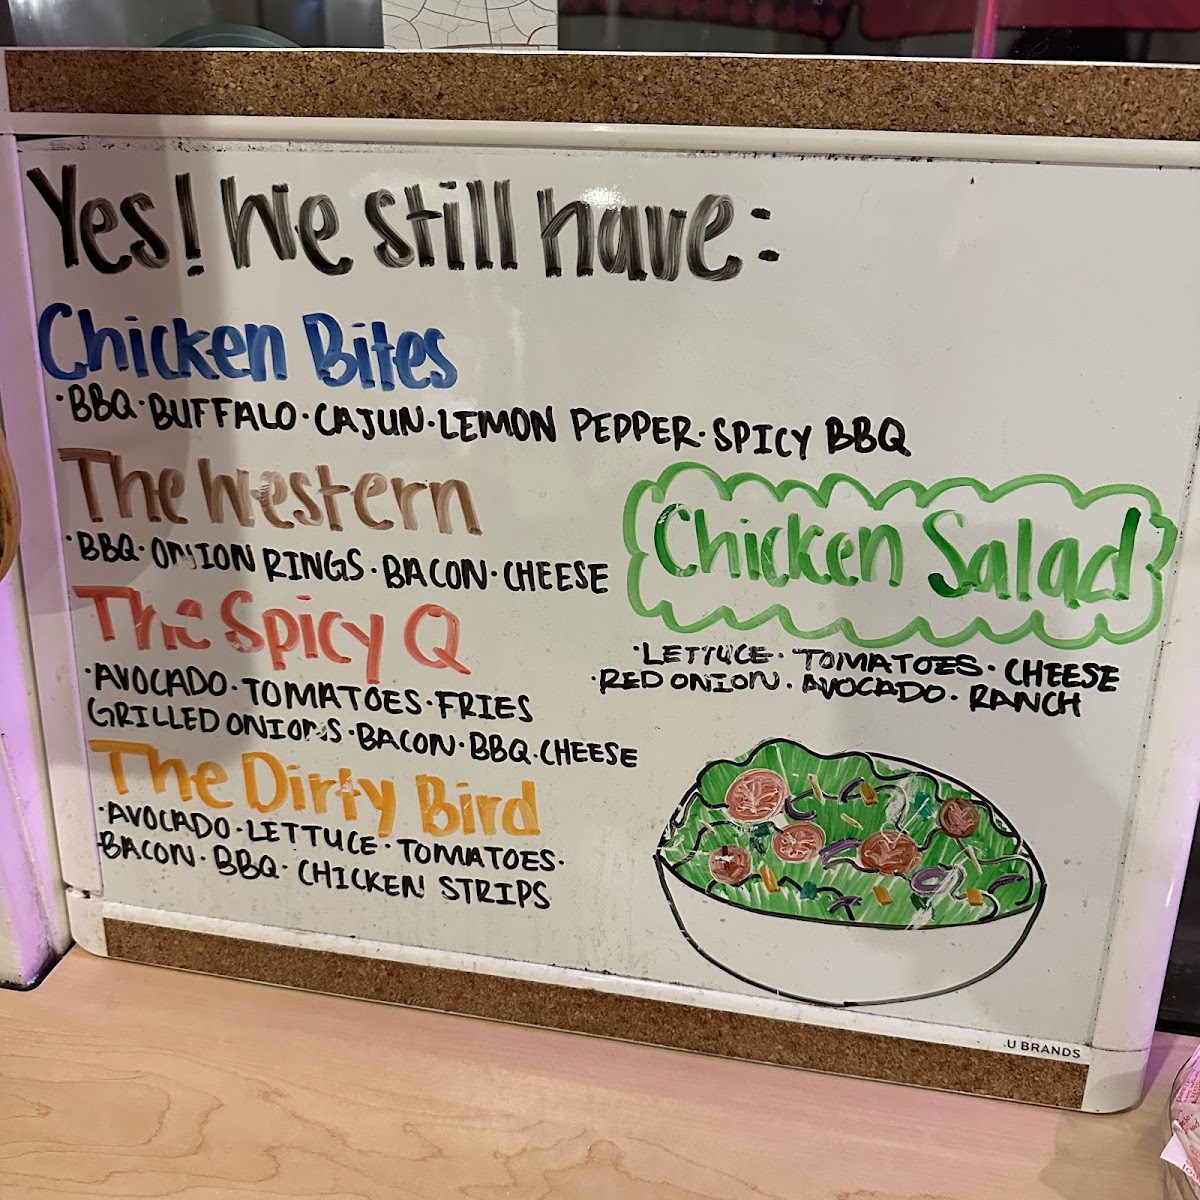 Yes! We still have:
Chicken Bites
·BBQ·BUFFALO·CAJUN·LEMON PEPPER·SPICY BBQ
The Western
·BBQ·ONION RINGS·BACON·CHEESE
The Spicy Q
·AVOCADO·TOMATOES·FRIES
GRILLED ONIONS·BACON·BBQ·CHEESE
The Dirty Bird
·AVOCADO·LETTUCE·TOMATOES·
BACON·BBQ·CHICKEN STRIPS
Chicken Salad
·LETTUCE·TOMATOES·CHEESE
·RED ONION·AVOCADO·RANCH
U BRANDS